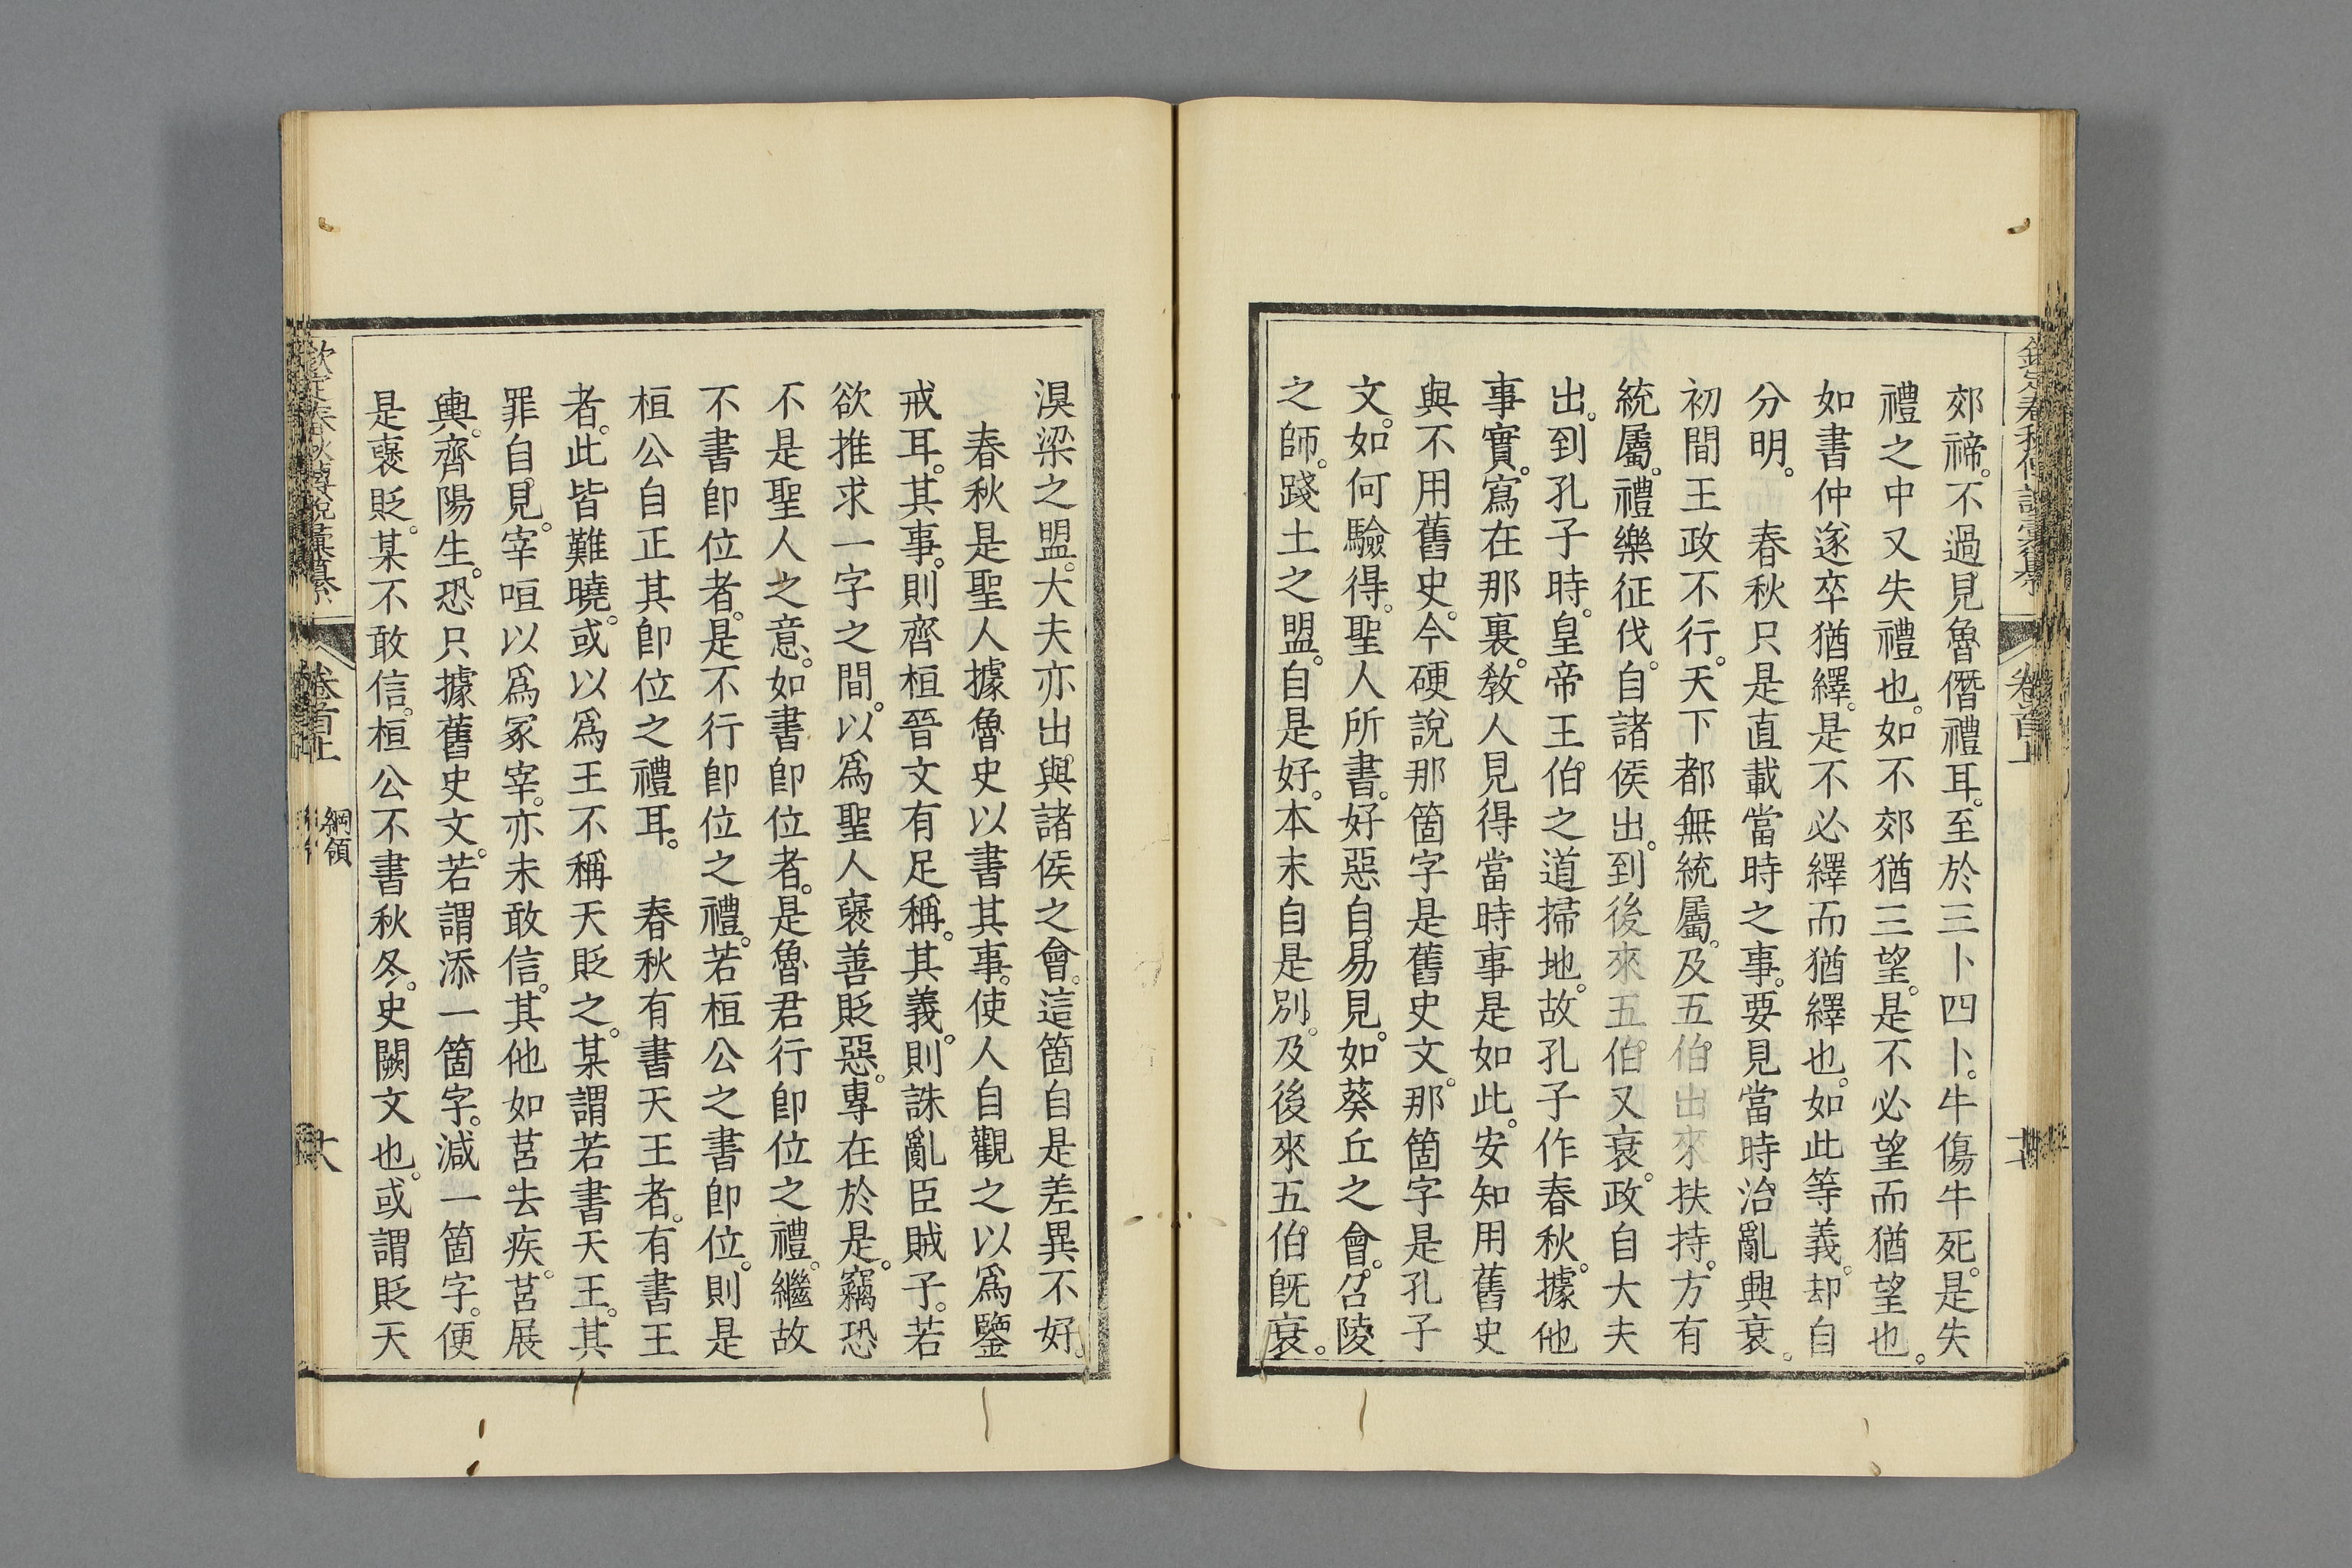 郊禘。不過見魯僭禮耳。至於三卜四卜。牛傷牛死。是失
禮之中又失禮也。如不郊猶三望。是不必望而猶望也。
如書仲遂卒猶繹。是不必繹而猶繹也。如此等義。却自
分明。　春秋只是直載當時之事。要見當時治亂興衰。
初間王政不行。天下都無統屬。及五伯出來扶持。方有
統屬。禮樂征伐。自諸侯出。到後來五伯又衰。政自大夫
出。到孔子時。皇帝王伯之道掃地。故孔子作春秋。據他
事實。寫在那裏。敎人見得當時事是如此。安知用舊史
與不用舊史。今硬說那箇字是舊史文。那箇字是孔子
文。如何驗得。聖人所書。好惡自易見。如葵丘之會。召陵
之師。踐土之盟。自是好。本末自是別。及後來五伯旣衰。
湨梁之盟。大夫亦出與諸侯之會。這箇自是差異不好。
春秋是聖人據魯史以書其事。使人自觀之以爲鑒
戒耳。其事。則齊桓晉文有足稱。其義。則誅亂臣賊子。若
欲推求一字之間。以爲聖人襃善貶惡。專在於是。竊恐
不是聖人之意。如書卽位者。是魯君行卽位之禮。繼故
不書卽位者。是不行卽位之禮。若桓公之書卽位。則是
桓公自正其卽位之禮耳。　春秋有書天王者。有書王
者。此皆難曉。或以爲王不稱天貶之。某謂若書天王。其
罪自見。宰咺以爲冢宰。亦未敢信。其他如莒去疾。莒展
輿。齊陽生。恐只據舊史文。若謂添一箇字。減一箇字。便
是襃貶。某不敢信。桓公不書秋冬。史闕文也。或謂貶天
欽定春秋傳說彙纂
卷首上
綱領